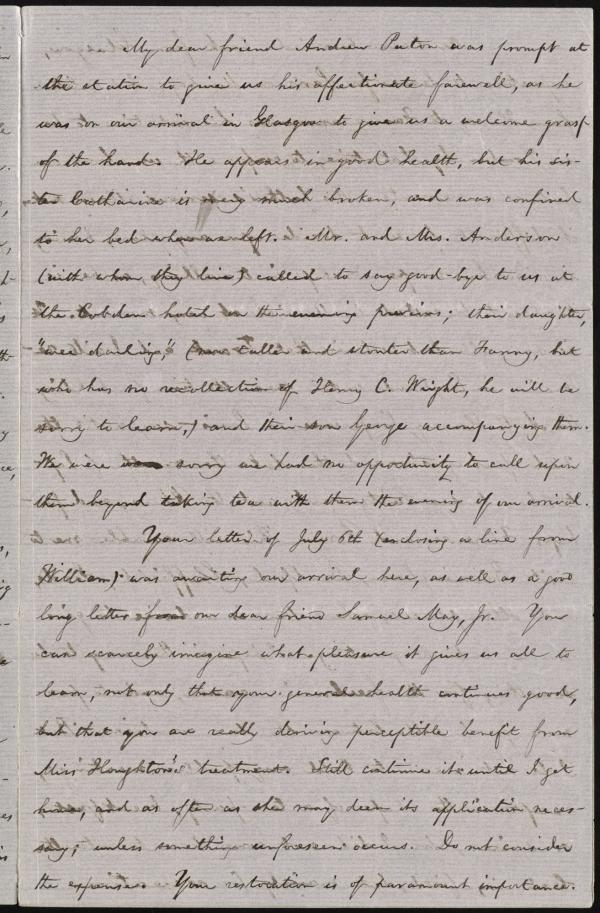 My dear friend Andrew Paton was prompt at
the station to give us his affectionate farewell, as he
was on our arrival in Glasgow to give us a welcome grasp
of the hand. He appears in good health, but his sis-
ter Catharine is very much broken, and was confined
to her bed when we left. Mr. and Mrs. Anderson
(with whom they live) called to say good-bye to us at
the Cobden hotel on the evening previous; their daughter,
"wee darling," (now taller and stouter than Fanny, but
who has no recollection of Henry C. Wright, he will be
sorry to learn,) and their son George accompanying them.
We were sorry we had no opportunity to call upon
them beyond taking tea with them the evening of our arrival.
Your letter of July 6th (enclosing a line from
William) was awaiting our arrival here, as well as a good
long letter from our dear friend Samuel May, Jr. You
can scarcely imagine what pleasure it gives us all to
learn, not only that your general health continues good,
but that you are really deriving perceptible benefit from
Miss Houghton's treatment. Still continue it until I get
home, and as often as she may deem its application neces-
sary; unless something unforeseen occurs. Do not consider
the expense. Your restoration is of paramount importance.